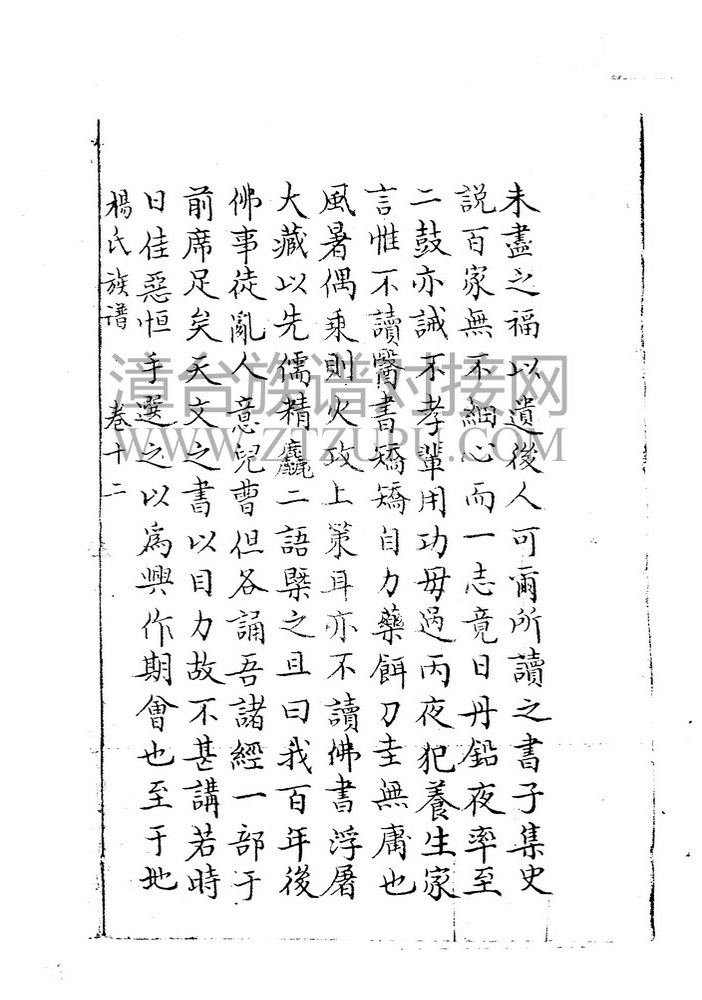 未盡之福以遺後人可爾所讀之書子集史
説百家無不細心而一志竟日丹鉛夜率至
二鼓亦誡不孝輩用功毋過丙夜犯養生家
言惟不讀醫書矯矯自力藥餌刀圭無庸也
風暑偶乘則火攻上策耳亦不讀佛書浮屠
大藏以先儒精麤二語槩之且曰我百年後
佛事徒亂人意兒曹但各誦吾諸經一部于
前席足矣天文之書以目力故不甚講若時
日佳惡恒手選之以爲興作期會也至于地
楊氏族谱 卷十二
漳台族谱对接网
WWW.ZTZUPU.COM